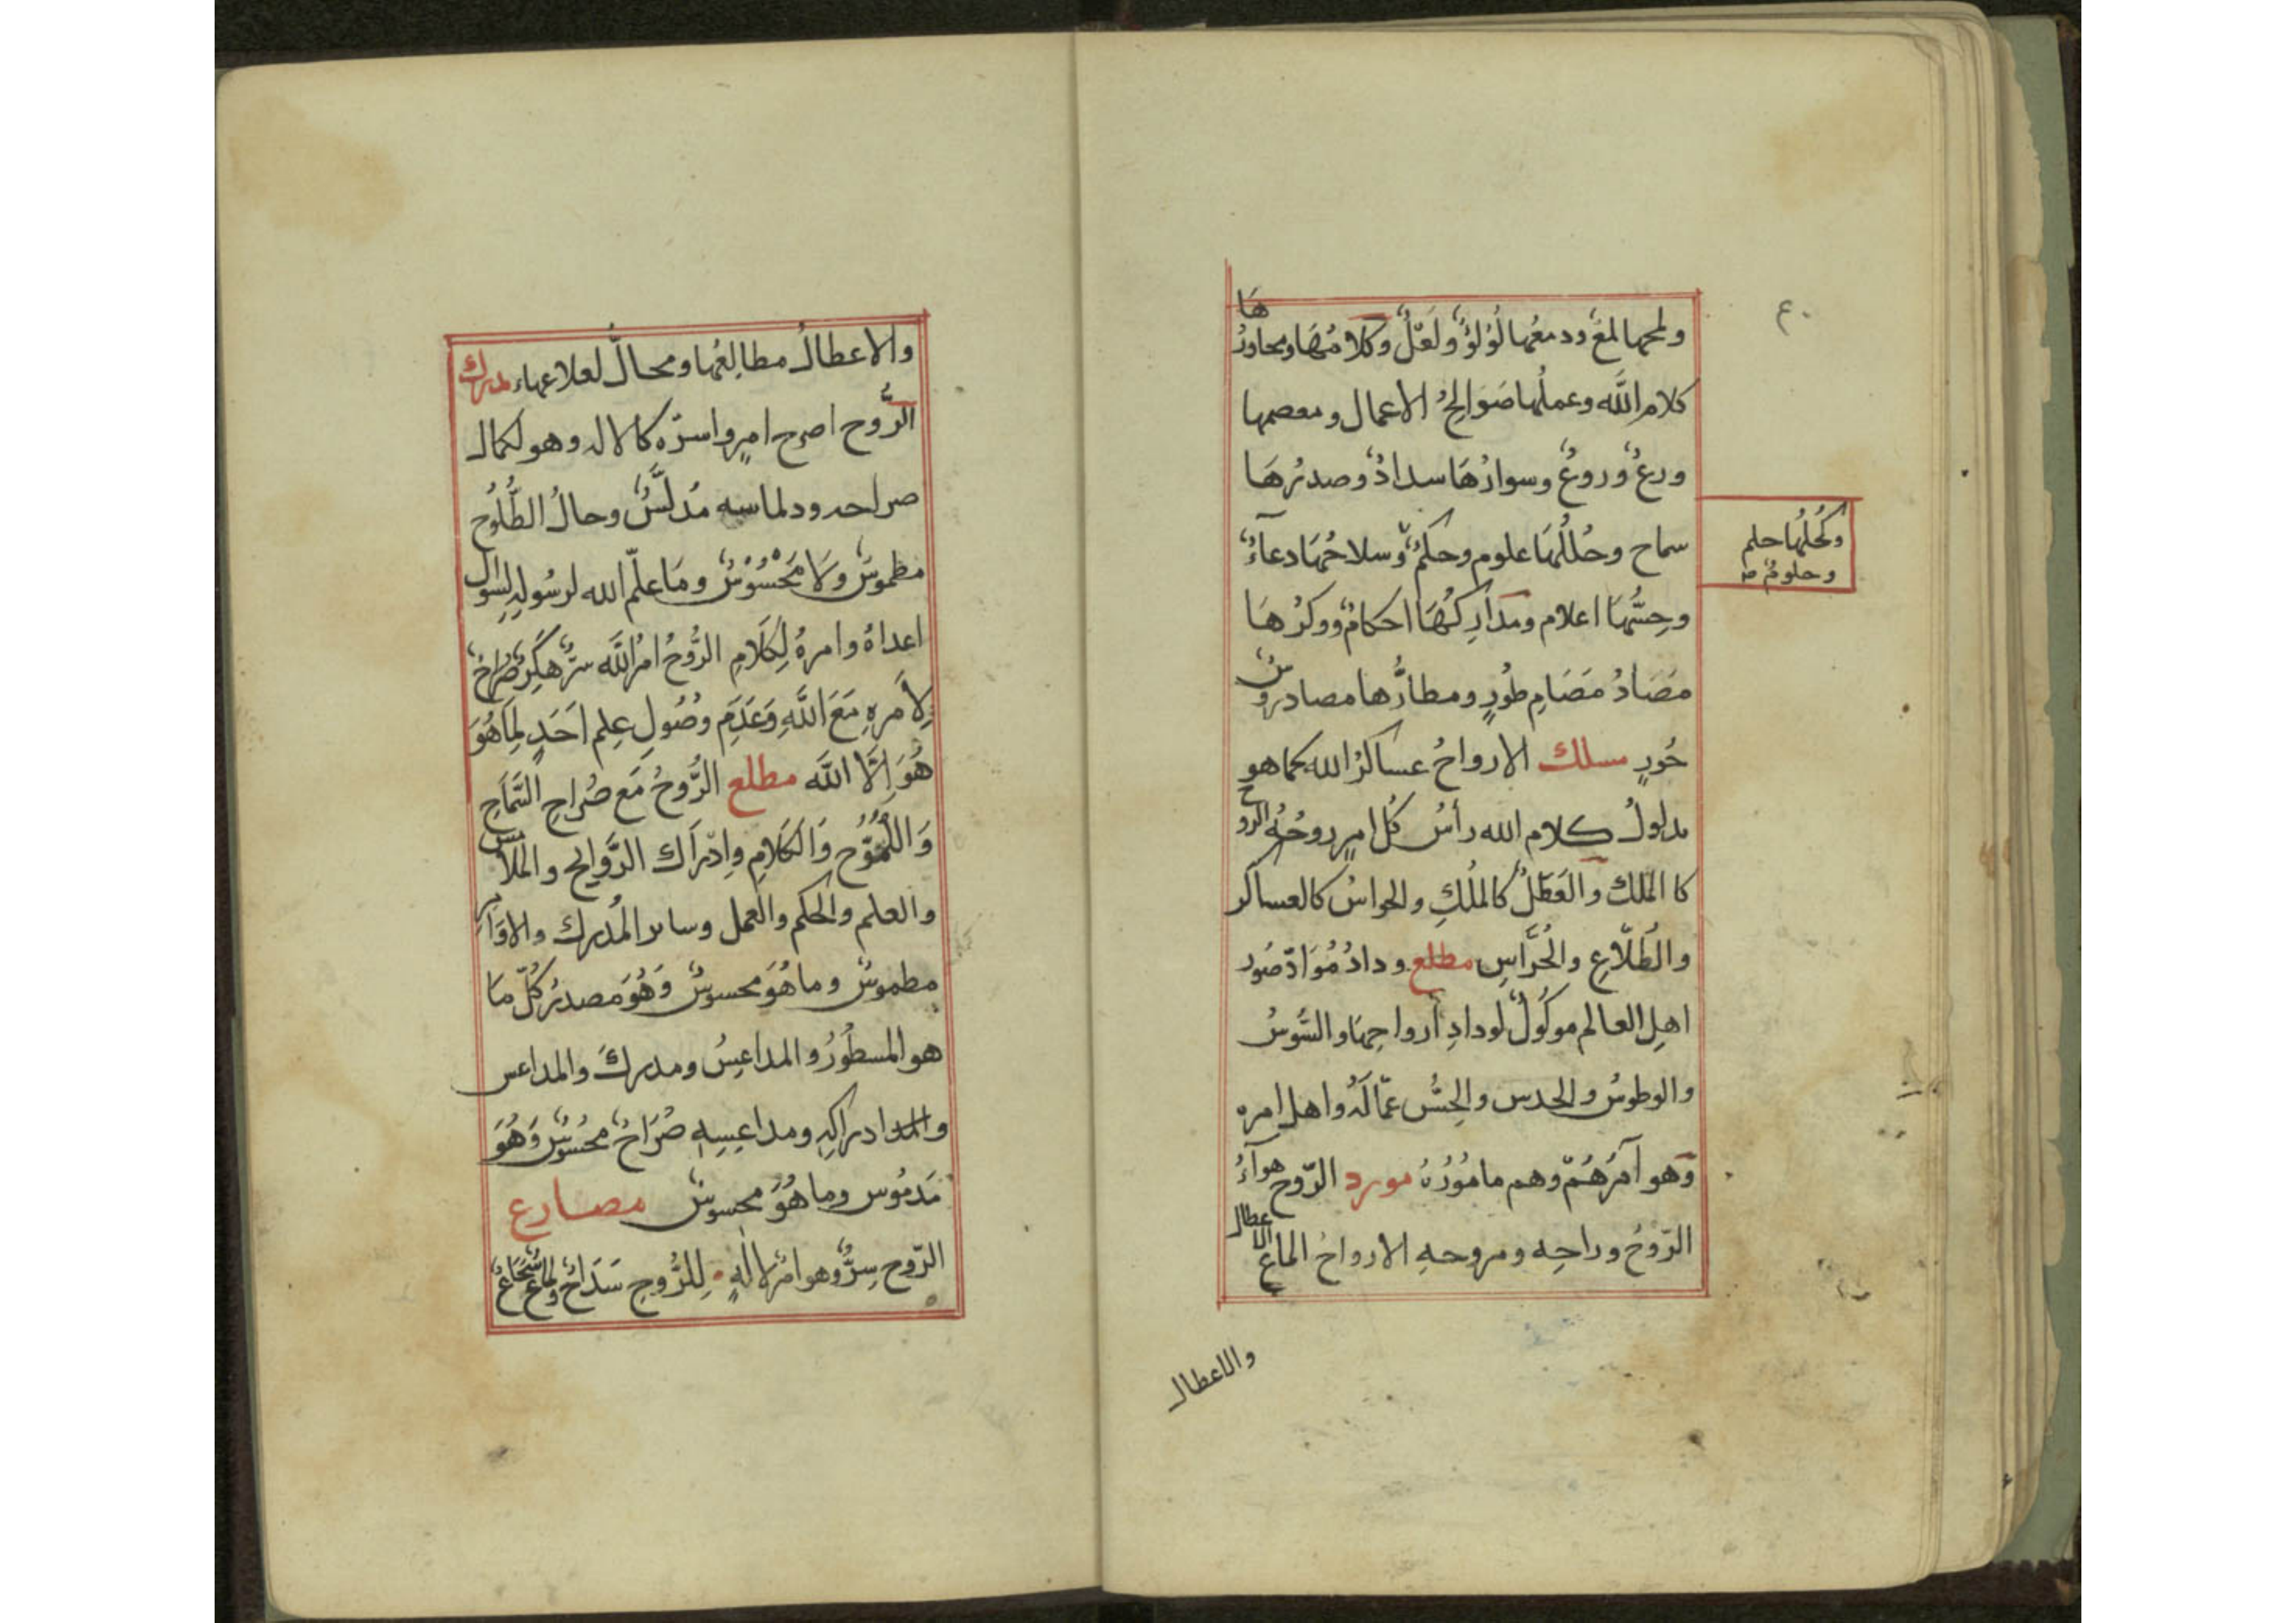 ولمحها لمع ودمعُها لُؤلؤٌ ولَعَلٌ وكلامُهَا ومحاورُها
كلام اللَّه وعملُها صَوَالِحُ الاعمال ومعصمها
ورعٌ وروعٌ وسوارُهَا سدادٌ وصدرُهَا
سماح وحُللُهَا علوم وحكمٌ وسلاحُهَا دعآءٌ
وكُحلُها حلم
وحلومٌ
وحِسُّهَا اعلام ومدارِكُهَا احكامٌ ووكرُهَا
مَصَادُ مَصَامِ طُورٍ ومطارُّها مصادر
حُورٍ مسلك الارواحُ عساكرُ الله كما هو
مدلولُ كلام الله رأسُ كُل امرٍ روحُهُ الروح
كا الملك والعَطَلُ كالمُلكِ والحواسُ كالعساكر
والطُلّاعِ والحُرَّاسِ مطلع ودادُ مُوَادّ صُور
اهلِ العالم موكُولٌ لودادِ أرواحِهَا والسُّوسُ
والوطوسُ والحدس والحِسُّ عمّالُه واهل امره
وهو آمرُهُمْ وهم مامُورُهُ مورد الرّوح هوآءُ
الرّوحُ وراحِه ومروحهِ الارواحُ الماعُ
والاعطال
والاعطالُ مطالِعُها ومحالُّ لعلاعها مدرك
الرُّوح اصرح امرٍ واسرّه كالاله وهو لكمال
صراحه ودلماسه مُدلَّسٌ وحالُ الطُّلُوحِ
مطموسٌ ولَا مَحْسُوْسٌ ومَا علّم الله لرسُولهِ لسؤال
اعداهُ وامرهُ لِكَلَامِ الرُّوحُ امرُ اللَّه
لِأَمرهِ مَعَ اللَّهِ وَعَدَمِ وُصُولِ عِلم اَحَدٍ لِمَا هُوَ
هُوَ اِلَّا اللَّه مطلع الرُّوحُ مَع صُراحِ السَّمَاحِ
وَاللُّمُوْحِ وَالكَلامِ وإدْرَاك الرَّوايح والملامس
والعلم والحكم والعمل وساىر المُدرك والاوَامر
مطموسٌ وما هُوَ محسوسٌ وَهُوَ مصدرُ كُلّ مَا
هو المسطُورُ والمداعِسُ ومدركَ والمداعس
ادراكِهِ ومداعِسِهِ صُرَاحٌ محسُوسٌ وَهُوَ
مَدمُوس وما هُوَ محسوسٌ مصارع
الرّوح سِرٌّ وهو امرُ الالٰهِ لِلرُّوحِ